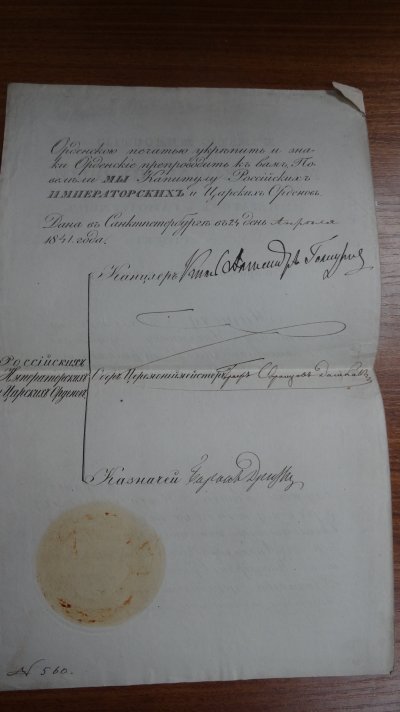 Орденскою печатью укрѣпить и зна-
ки Орденскіе препроводить къ вамъ, По-
велѣли МЫ Капитулу Россійскихъ
ИМПЕРАТОРСКИХЪ и Царскихъ Орденовъ.
Дана въ Санктпетербургѣ въ 24 день Апрѣля
1841 года.
Канцлеръ Князь Александръ Голицынъ
Россійскихъ
Императорскихъ
и Царскихъ Орденовъ
Оберъ Церемоніймейстеръ Графъ Воронцовъ Дашковъ
Казначей
№ 560.